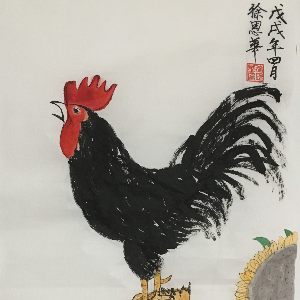 戊戌年四月
徐恩华